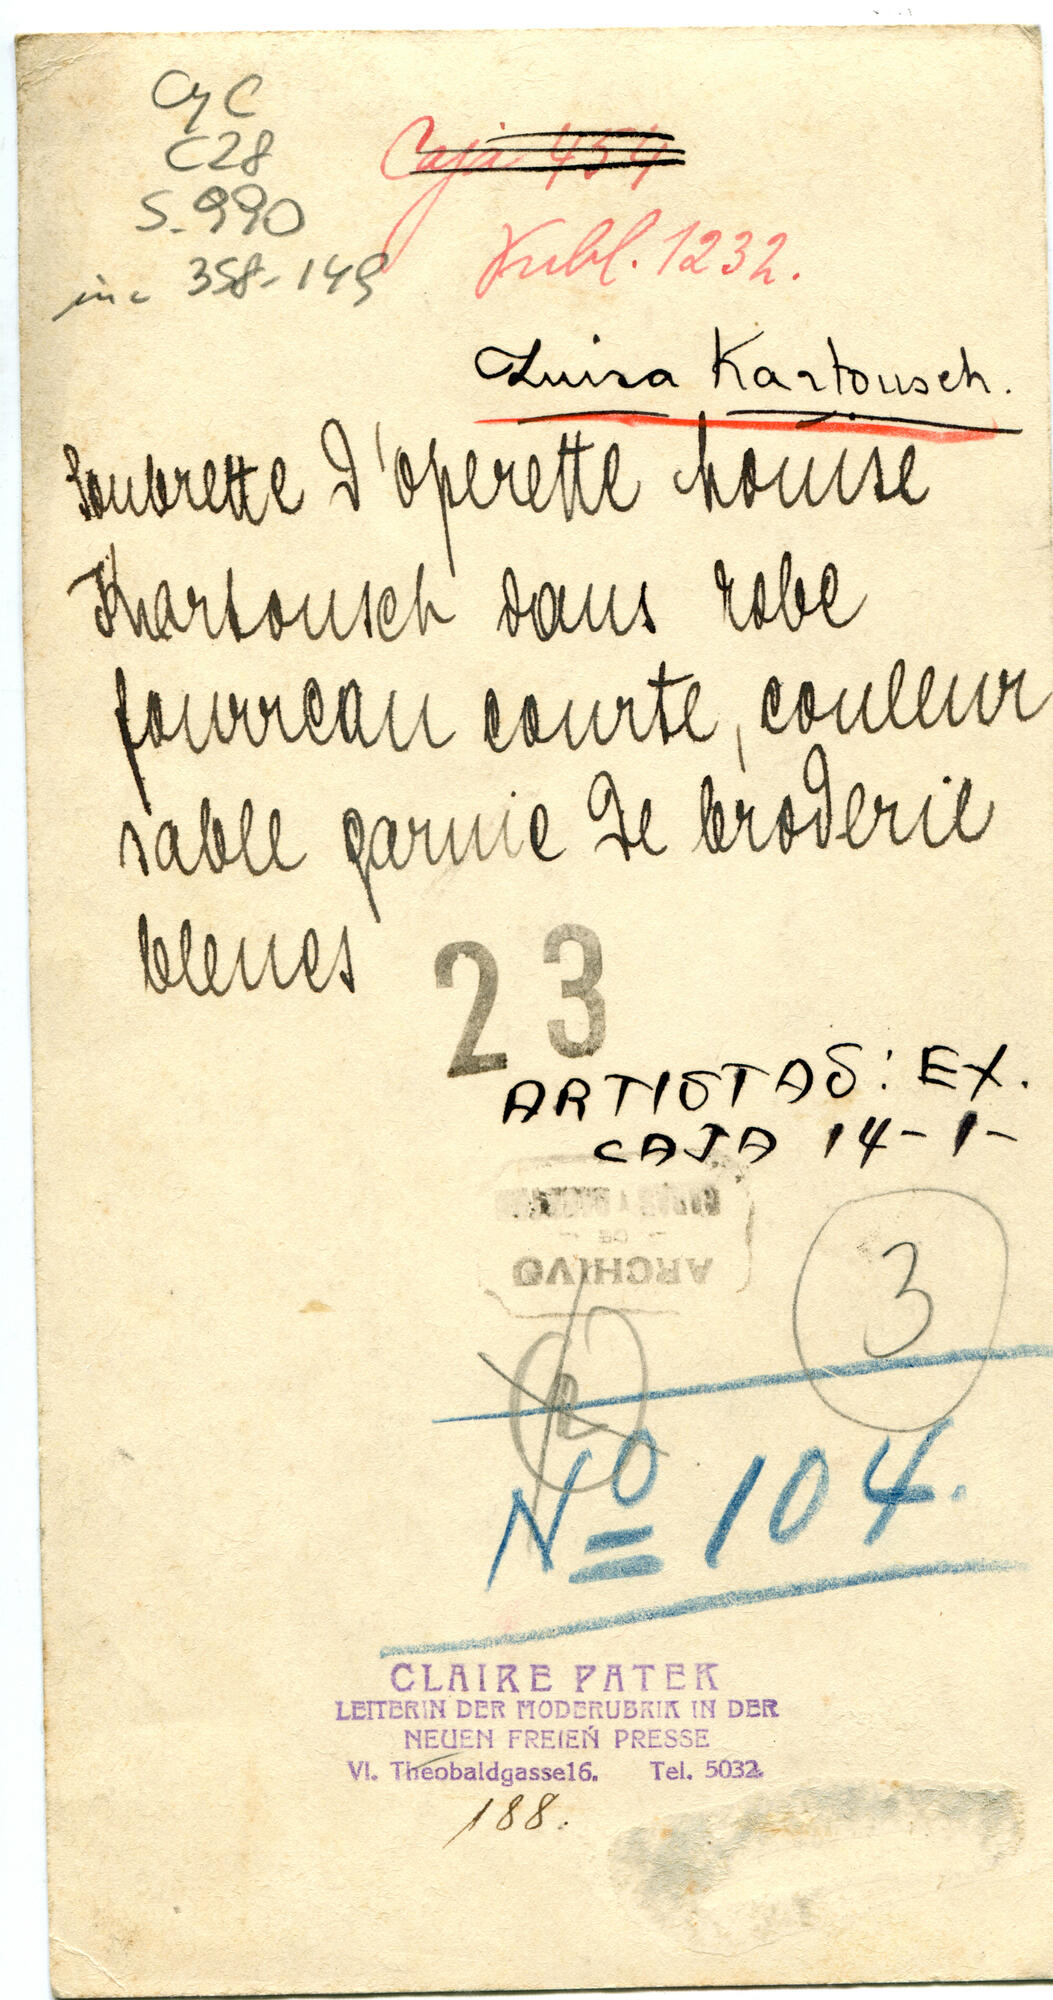 CyC
C28
S. 990
inc 358-149
Caja 454
Publ. 1232.
Luisa Kartousch.
Soubrette d'operette Louise
Kartousch dans robe
fourreau courte, couleur
sable garnie de broderie
bleues
23
ARTISTAS: EX.
CAJA 14-1-
ARCHIVO
DE
3
2
Nº 104.
CLAIRE PATEK
LEITERIN DER MODERUBRIK IN DER
NEUEN FREIEN PRESSE
VI. Theobaldgasse16. Tel. 5032
188.